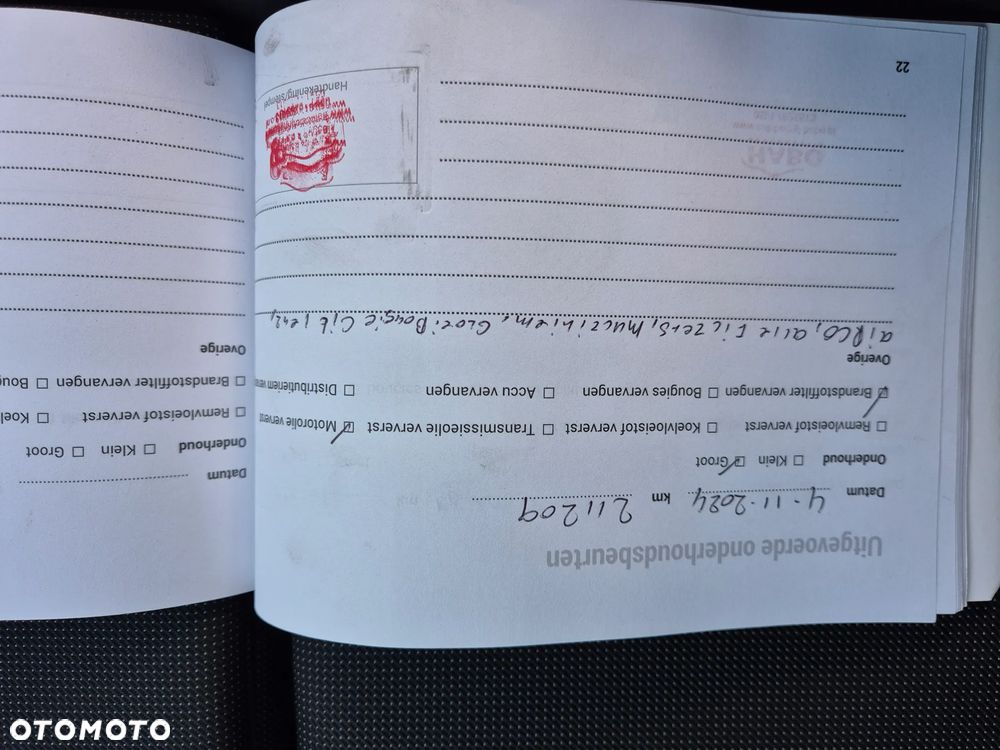 Uitgevoerde onderhoudsbeurten
Datum 4-11-2024 km 211209
Onderhoud Klein Groot
Remvloeistof ververst Koelvloeistof ververst Transmissieolie ververst Motorolie ververst
Brandstoffilter vervangen Bougies vervangen Accu vervangen Distributieriem
Overige
aiRCO, alle Filters,
Handtekening/Stempel
22
Datum
Onderhoud Klein Groot
Remvloeistof ververst Koel
Brandstoffilter vervangen Bou
Overige
HABO
OTOMOTO